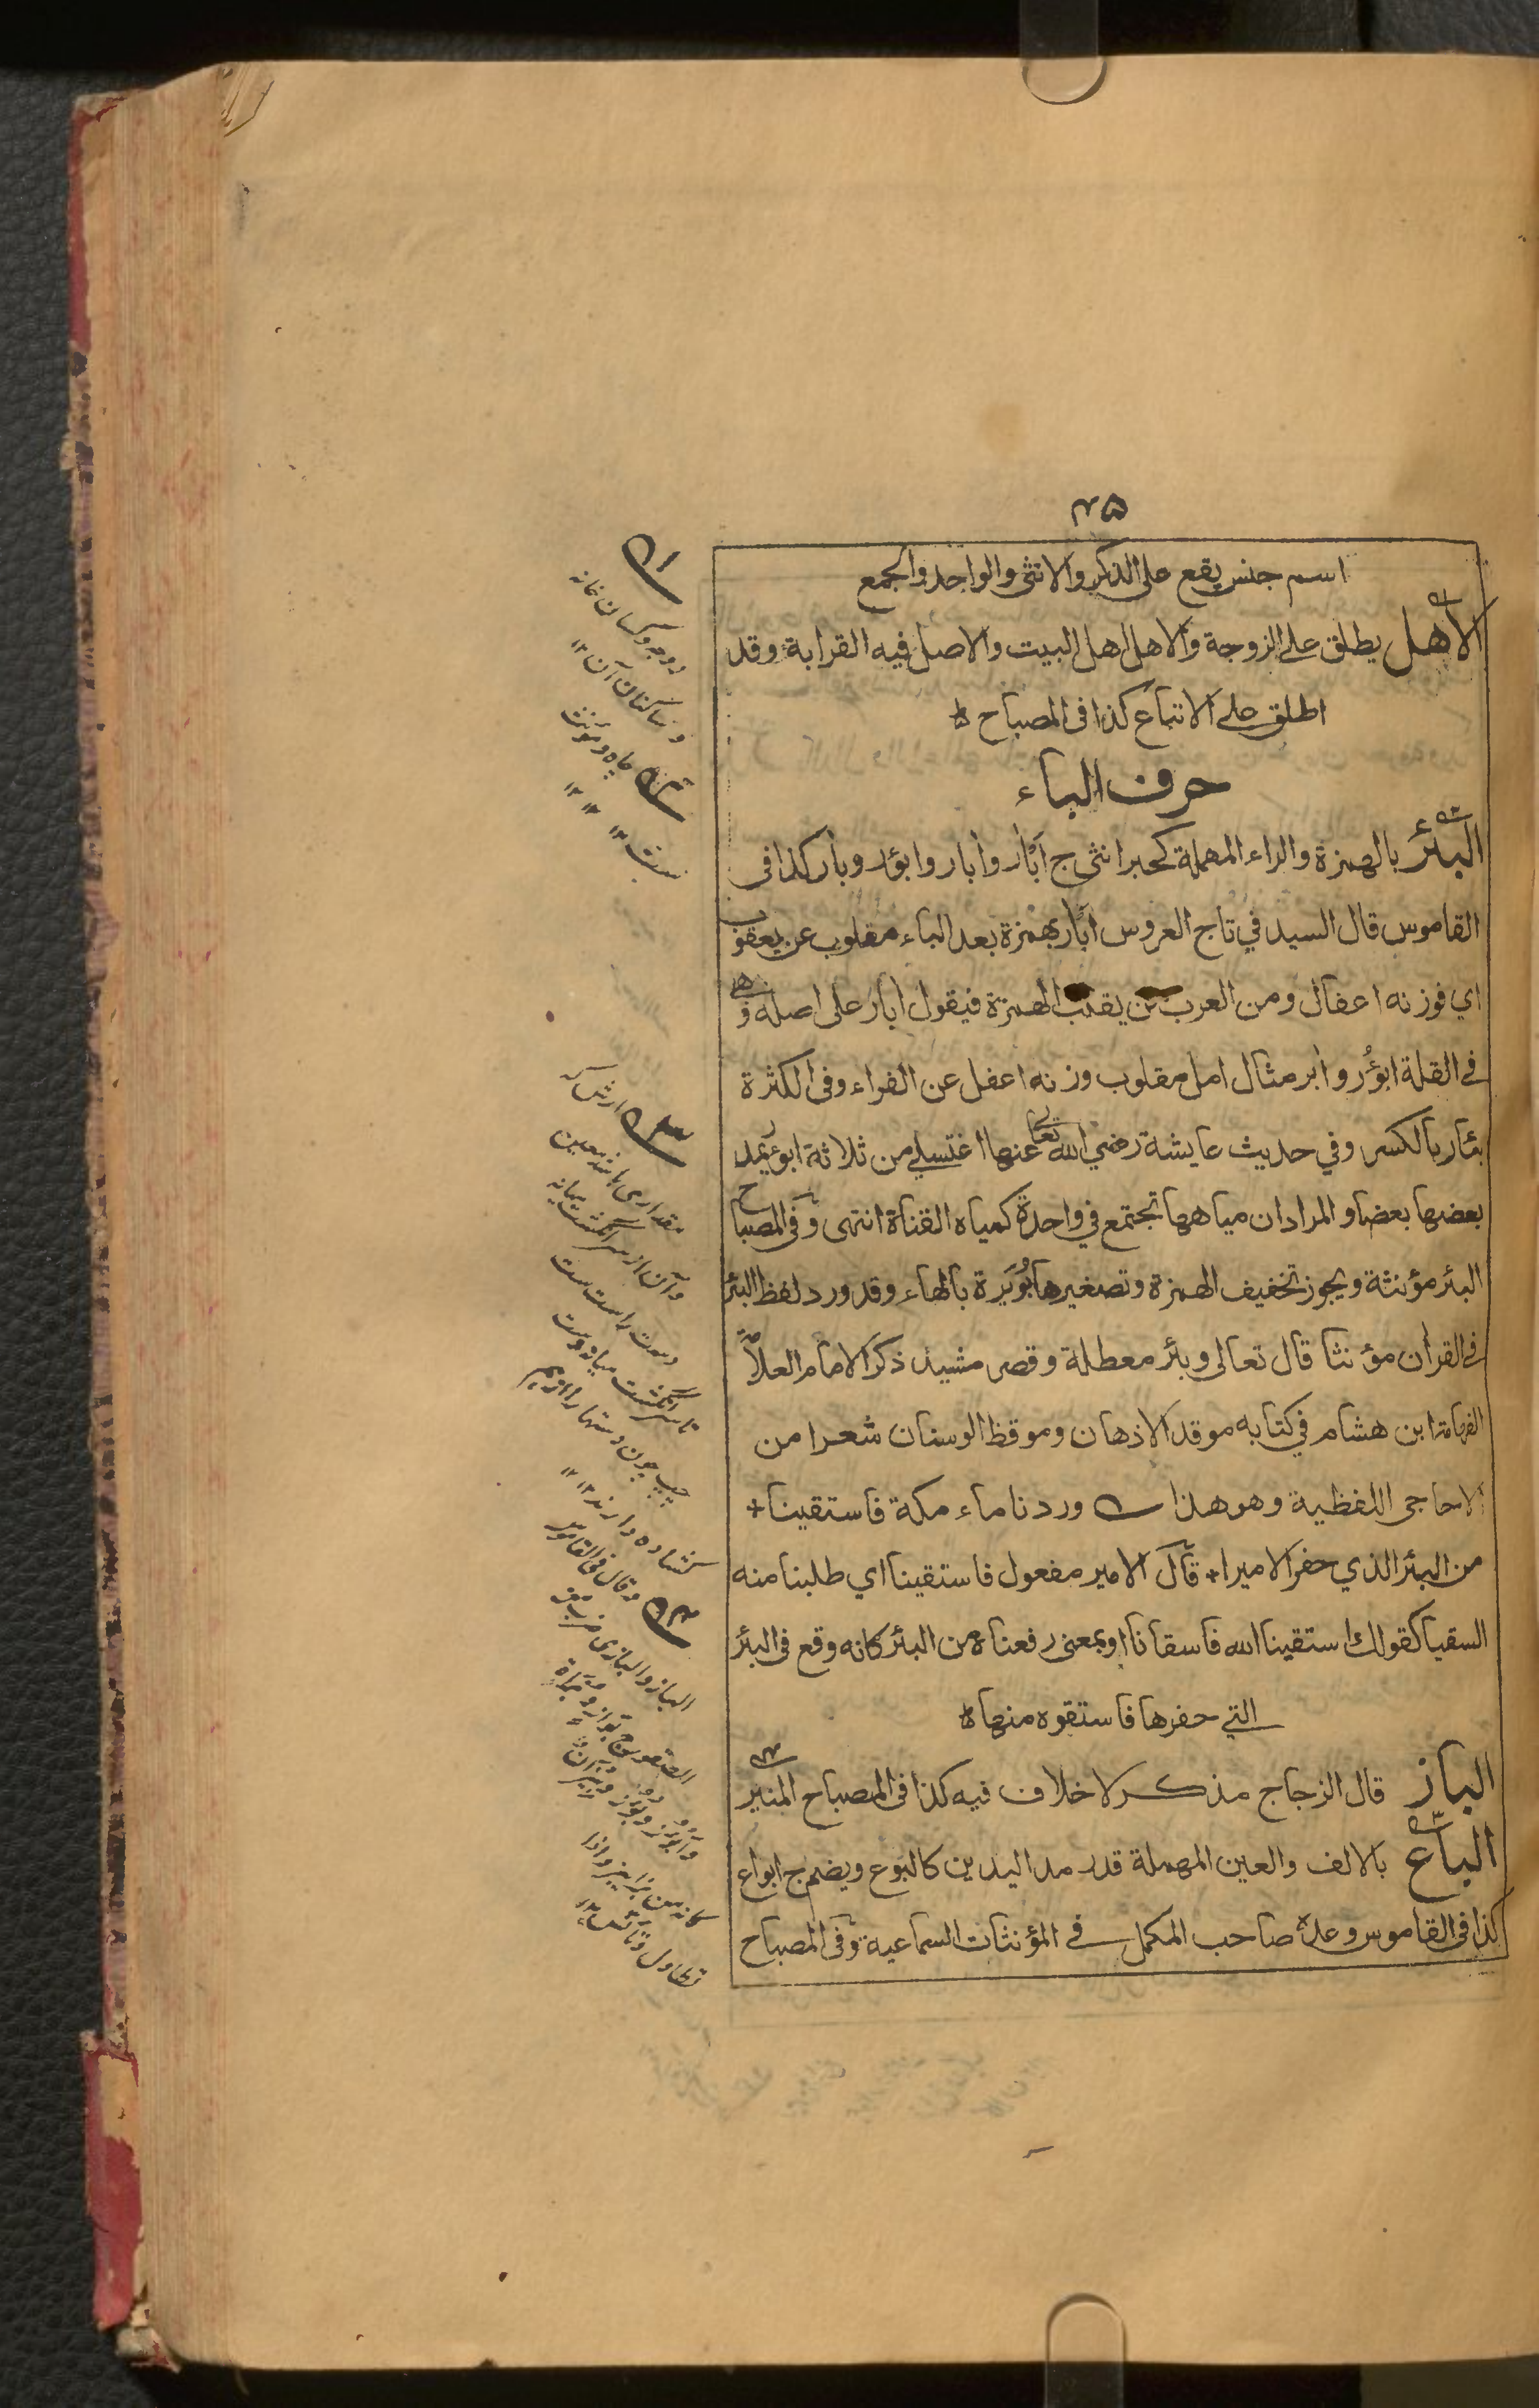 ٣٥
اسم جنس يقع على الذكر والانثى والواحد والجمع
الاهل يطلق على الزوجة والاهل اهل البيت والاصل فيه القرابة وقد
اطلق على الاتباع كذا فى المصباح
حرف الباء
البئر بالهمزة والراء المهملة كحبر انثى ج أبآر وآبار وابؤر وبار كذا فى
القاموس قال السيد في تاج العروس ابآر بهمزة بعد الباء مقلوب عن يعقوب
اي فوزنه اعفال ومن العرب من يقلب الهمزة فيقول ابآر على اصله وهى
فى القلة ابؤر وابر مثال امل مقلوب وزنه اعفل عن الفراء وفى الكثرة
بئار بالكسر وفي حديث عايشة رضي الله تعالى عنها اغتسلي من ثلاثة ابؤر يمد
بعضها بعضا والمراد ان مياهها تجتمع في واحدة كمياه القناة انتهى وفى المصباح
البئر مؤنثة ويجوز تخفيف الهمزة وتصغيرها بُوَيرة بالهاء وقد ورد لفظ البئر
فى القرآن مؤنثا قال تعالى وبئر معطلة وقصر مشيد ذكر الامام العلامة
الفهامة ابن هشام في كتابه موقد الاذهان وموقظ الوسنان شعرا من
الاحاجى اللفظية وهو هذا وردنا ماء مكة فاستقينا +
من البئر الذي حفر الاميرا + قال الامير مفعول فاستقينا اي طلبنا منه
السقيا كقولك استقينا الله فاسقانا او بمعنى رفعناه من البئر كانه وقع فى البئر
التي حفرها فاستقوه منها
الباز قال الزجاج مذكر لا خلاف فيه كذا فى المصباح المنير
الباع بالالف والعين المهملة قدر مد اليدين كالبوع ويضم ج ابواع
كذا فى القاموس وعده صاحب المكمل فى المؤنثات السماعية وفى المصباح
١
زوجه وكسان خانه
وساكنان آن ١٢
٢ چاه ومونث
ست ١٢ ١٢ ١٢
٣ ارش كه
مقدارى باشد معين
وآن از سر انگشت ميانه
دست راست ست
تا سر انگشت ميانه دست
چپ چون دستها را از هم
كشاده دارند ١٢ ١٢
٤ وقال فى القاموس
الباز والبازى ضرب من
الصقور ج بواز وبزاة
وابؤز وبؤز وبئزان